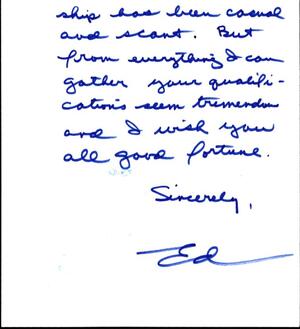 ship has been casual
and scant. But
from everything I can
gather your qualifi-
cations seem tremendou
and I wish you
all good fortune.
Sincerely,
Ed